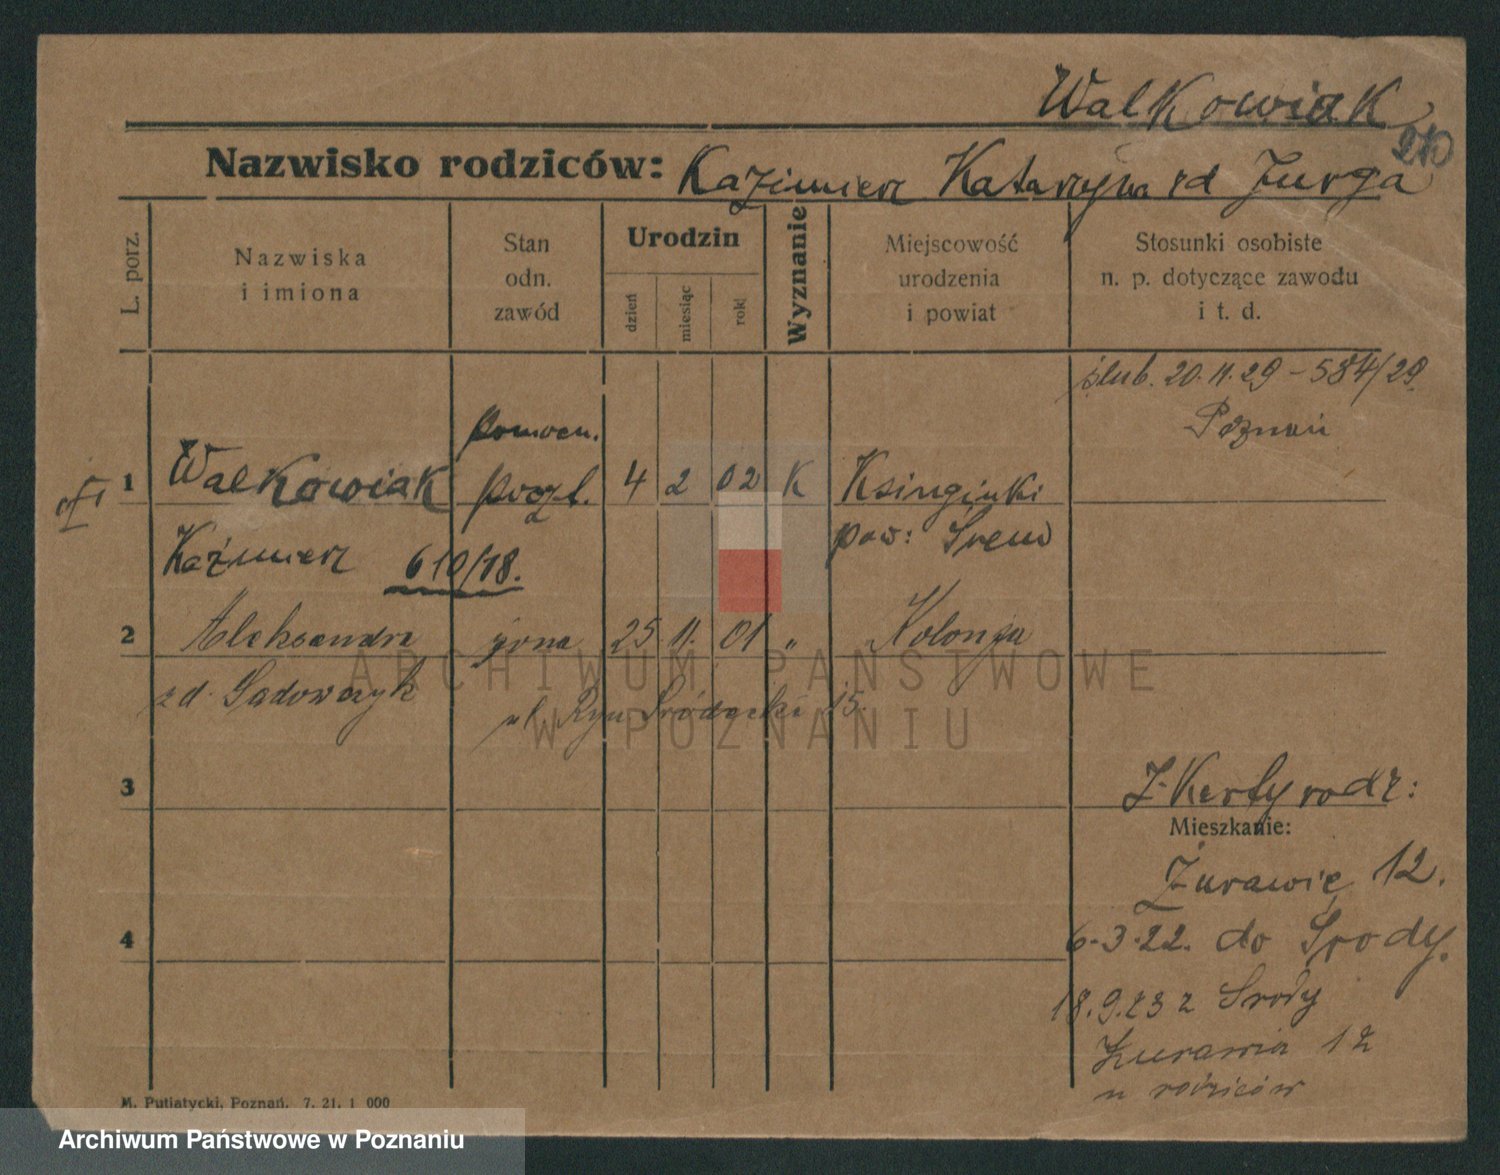 Walkowiak
210
Nazwisko rodziców: Kazimierz Katarzyna zd Jurga
L. porz.
Nazwiska
i imiona
Stan
odn.
zawód
Urodzin
dzień
miesiąc
rok
Wyznanie
Miejscowość
urodzenia
i powiat
Stosunki osobiste
n. p. dotyczące zawodu
i t. d.
ślub. 20.11.29 – 584/29
Poznań
1 Walkowiak pomocn. poczt. 4 2 02 K Ksinginki
pow: Śrem
Kaźmierz 610/18.
2 Aleksandra żona 25 11. 01 " Kolonga
zd. Sadowczyk
ul. Ryn Śródecki 15.
3
Z. Karty rodz:
Mieszkanie:
Żurawie 12.
4
6-3-22. do Środy.
18.9.23 z Środy
Żurawia 12
u rodziców
M. Putiatycki, Poznań. 7. 21. 1 000
ARCHIWUM PAŃSTWOWE
W POZNANIU
Archiwum Państwowe w Poznaniu